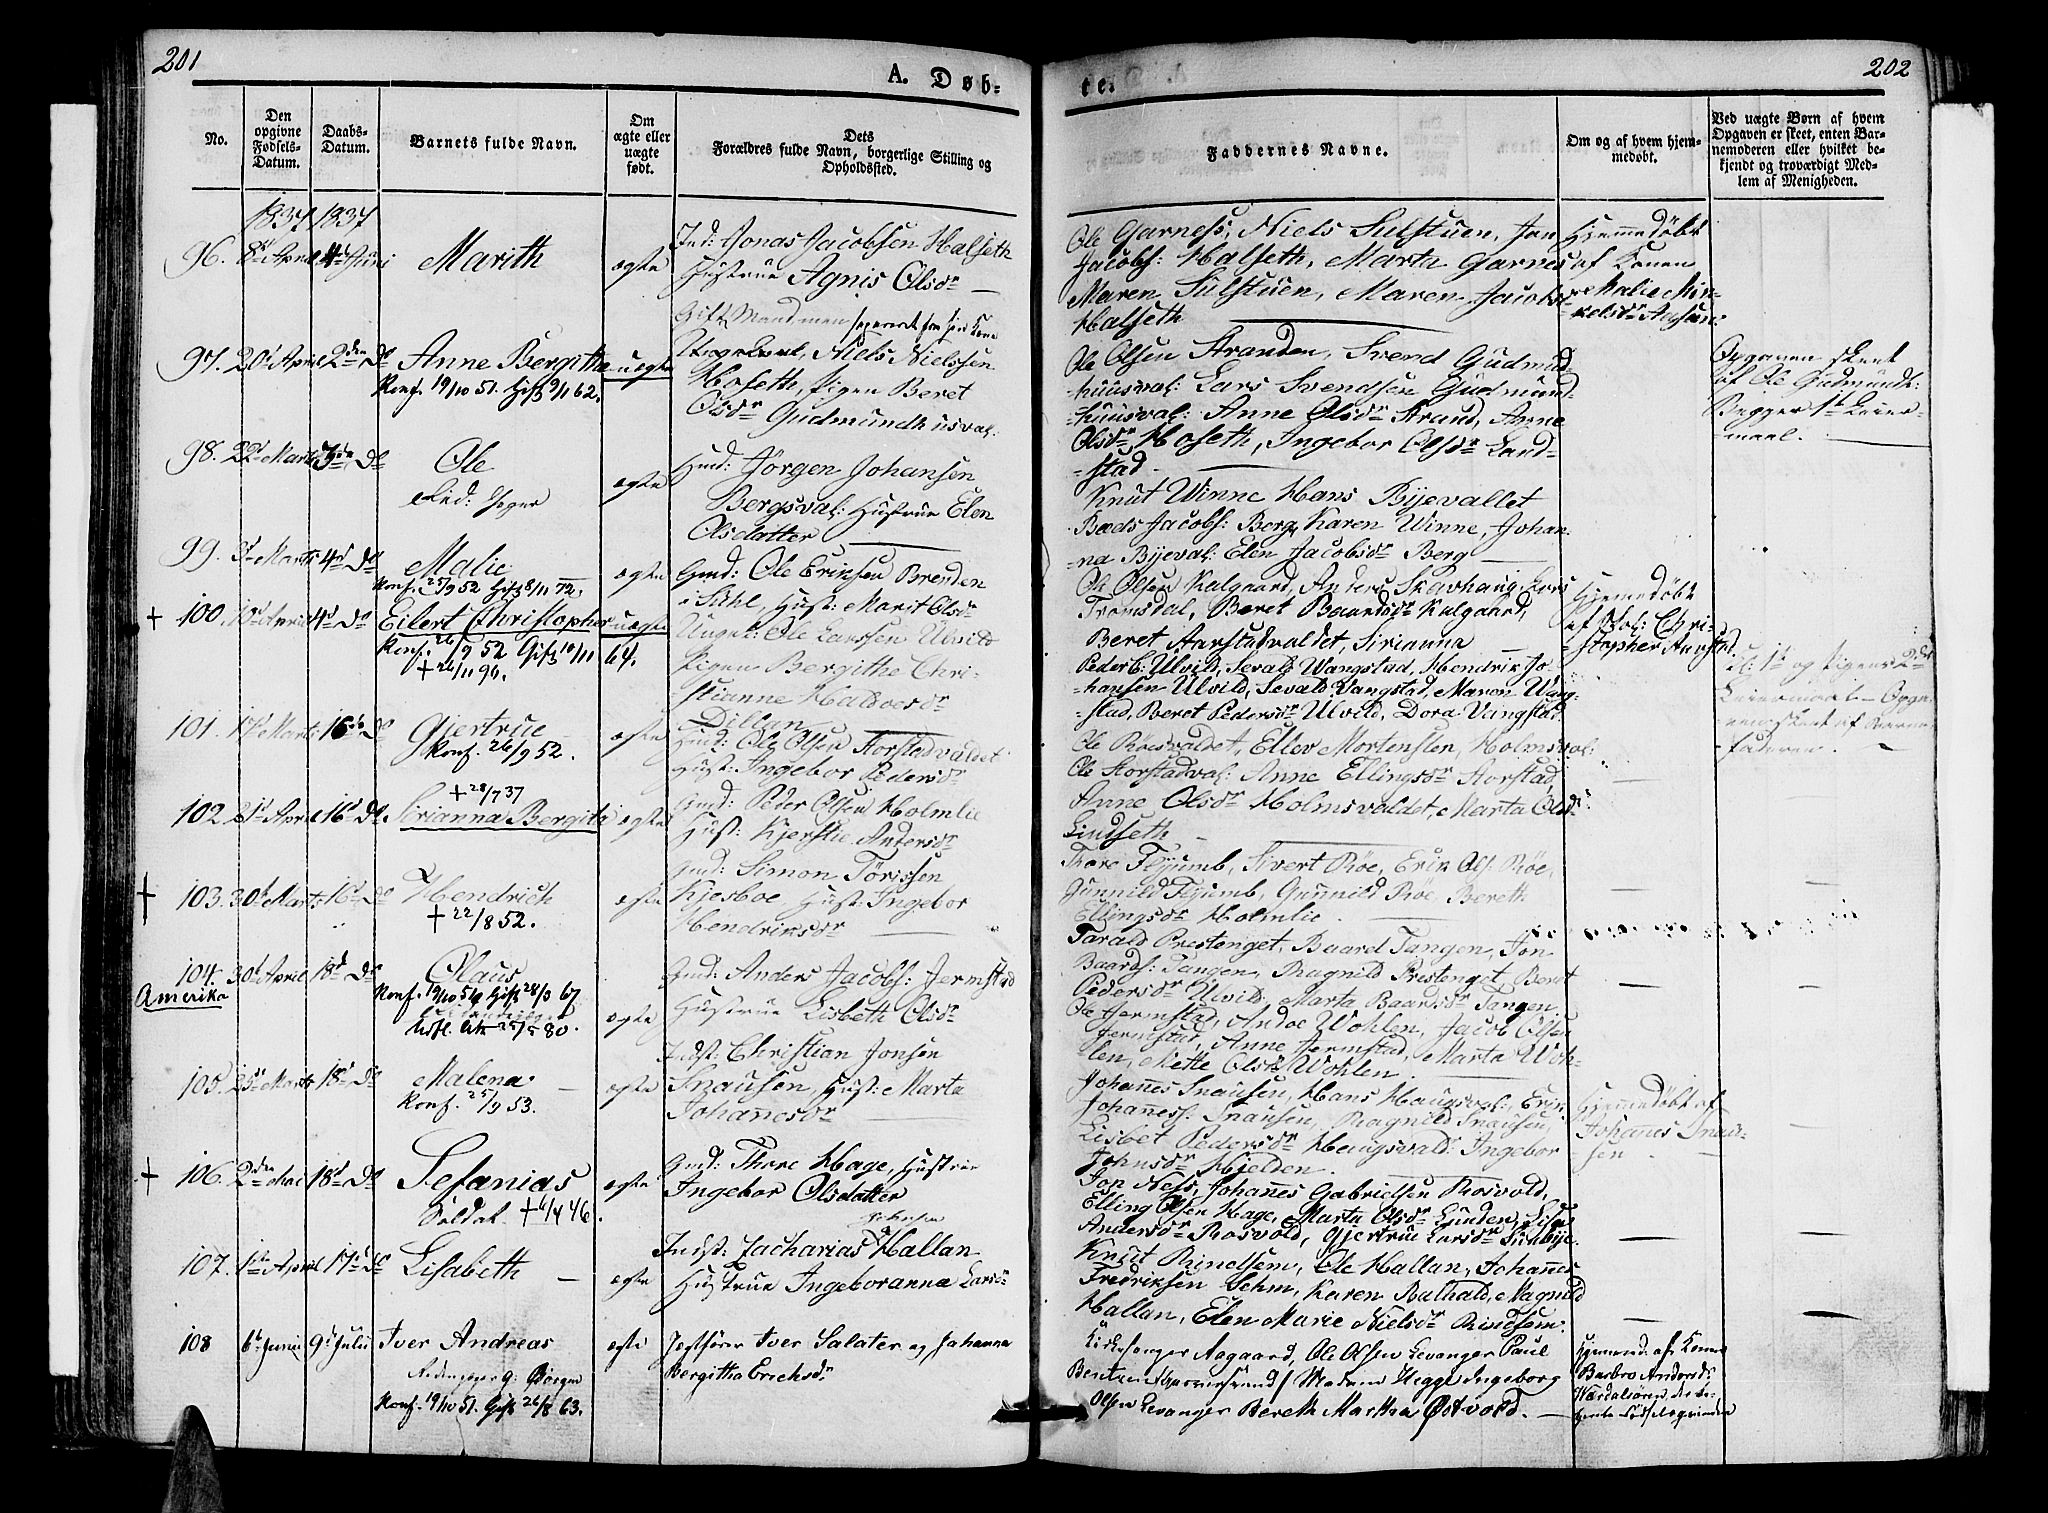 201
A. Døb-
te.
202
No.
Den
opgivne
Fødsels-
Datum.
Daabs-
Datum.
Barnets fulde Navn.
Om
ægte eller
uægte
født.
Dets
Forældres fulde Navn, borgerlige Stilling og
Opholdssted.
Faddernes Navne.
Om og af hvem hjem-
medøbt.
Ved uægte Børn af hvem
Opgaven er skeet, enten Bar-
nemoderen eller hvilket be-
kjendt og troværdigt Med-
lem af Menigheden.
1837 1837
96. 8de April 4de Juni Marith ægte
Ind: Jonas Jacobsen Halseth
Hustrue Agnis Olsdr
Ole Garness, Niels Sulstuen, Jon
Jacobs: Halseth, Marta Garnes
Maren Sulstuen, Maren Jacobsd
Halseth
Hjemmedøbt
af Konen
Malie Min-
97. 20d April 2den Do Anne Bergitha uægte
Konf. 19/10 51. Gift 9/11 62.
Gift Mand men separeret fra sin Kone
Niels Nielssen
Hoseth, Pigen Beret
Olsdr Gudmundhusval.
Ole Olsen Stranden, Svend Gudmund-
huusval: Lars Svendsen Gudmund-
huusval: Anne Olsdr Strand, Anne
Olsdr Hoseth, Ingebor Olsdr Land-
stad
Opgaven skeet
af Ole Gudmundh:
Begges 1te Leier-
maal.
98. 22d Marts Do Ole ægte
Hmd: Jörgen Johansen
Bergsval: Hustrue Elen
Olsdatter
Knut Winne Hans Byevallet
Baeds Jacobs: Berg, Karen Winne, Johan-
na Byeval: Elen Jacobsdr Berg
99. 3d Marts 4d Do Malie ægte
Konf. 25/9 52 Gift 8/11 72
Gmd: Ole Eriksen Brenden
i Suhl, Hust: Marit Olsdr
Ole Olsen Kalgaard, Anders Skavhaug Lars
Tromsdal, Beret Baardsdr Kalgaard,
Beret Aarstadvaldet, Sirianna
Hjemmedøbt
af Skol: Chri-
stopher Aarstad
+ 100. 10d April 4d Do Eilert Christopher uægte
Konf. 26/9 52 Gift 10/11 64.
+ 26/11 90.
Ungk: Ole Larssen Ulvild
Pigen Bergithe Chri-
stianne Halvorsdr
Dillan
Peder E: Ulvild, Sevald Vangstad, Hendrik Jo-
hansen Ulvild, Sevald Vangstad, Maron Vang-
stad, Beret Pedersdr Ulvild, Dora Vangstad
1te og Pigens 2det
Leiermaal - Opga-
ven skeet af Barne-
faderen.
101. 17d Marts 16de Do Gjertrue ægte
Konf. 26/9 52.
Hmd: Ole Olsen Storstadvaldet
Hust: Ingebor Pedersdr
Ole Röesvaldet, Ellev Mortensen, Holmsval:
Ole Storstadval: Anne Ellingsdr Storstad,
Anne Olsdr Holmsvaldet, Marta Olsdr
Lindseth
+ 28/7 37
102. 21d April 16d Do Sirianna Bergita ægte
Gmd: Peder Olsen Holmlie
Hust: Kjerstie Andersdr
Tore Flyumb, Sivert Röe, Erik Ols: Röe,
Gunnild Flyumb, Gunnild Röe, Bereth
Ellingsdr Holmlie
+ 103. 30d Marts 16d Do Hendrich ægte
+ 22/8 52.
Gmd: Simon Törissen
Kjesboe, Hust: Ingebor
Hendriksdr
Tarald Prestenget, Baard Tangen, Jon
Baards: Tangen, Ragnild Prestenget, Beret
Pedersdr Ulvild, Marta Baardsdr Tangen
104. 30d April 18d Do Olaus ægte
Amerika
Konf. 19/10 51 Gift 28/3 67
Udfl. Att. 25/5 80.
Gmd: Anders Jacobs: Jermstad
Hustrue Lisbeth Olsdr
Ole Jermstad, Andoe Wohlen, Jacob Olsen
Jermstad, Anne Jermstad, Marta Woh-
len, Mette Olsdr Wohlen
105. 25de Marts 18d Do Malena ægte
Konf. 25/9 53.
Indst: Christian Jonsen
Snausen, Hust: Marta
Johannesdr
Johannes Snausen, Hans Haugsval: Erik
Johaness: Snausen, Ragnild Snausen,
Lisbet Pedersdr Haugsvald: Ingebor
Johnsdr Hjelden.
Hjemmedøbt af
Johanes Snau-
sen
+ 106. 2den Mai 18d Do Sefanias ægte
Soldat. + 6/4 46.
Gmd: Thore Hage, Hustrue
Ingebor Olsdatter
Jon Ness, Johannes Gabrielsen Rosvold,
Elling Olsen Hage, Marta Olsdr Lunden, Lisbet
Andersdr Rosvold, Gjertrue Larsdr
107. 1ste April 17de Do Lisabeth ægte
Indst: Zacharias Hallan
Hustrue Ingeboranna Larsdr
Knut Rindsem, Ole Hallan, Johannes
Fredriksen Sehm, Karen Rathald, Magnild
Hallan, Elen Marie Nielsdr Rindsem.
108 6te Junii 9d Julii Iver Andreas ægte
Konf. 19/10 51. Gift 26/8 63.
Jægtfører Iver Salater og Johanna
Bergitha Erichsdr
Kirkesanger Aagaard, Ole Olsen Levanger Paul
Bentzen / Madam Hegge Ingeborg
Olsen Levanger Bereth Martha Østvold.
Hjemmed: af Konen
Barbro Andersd:
Værdalsören